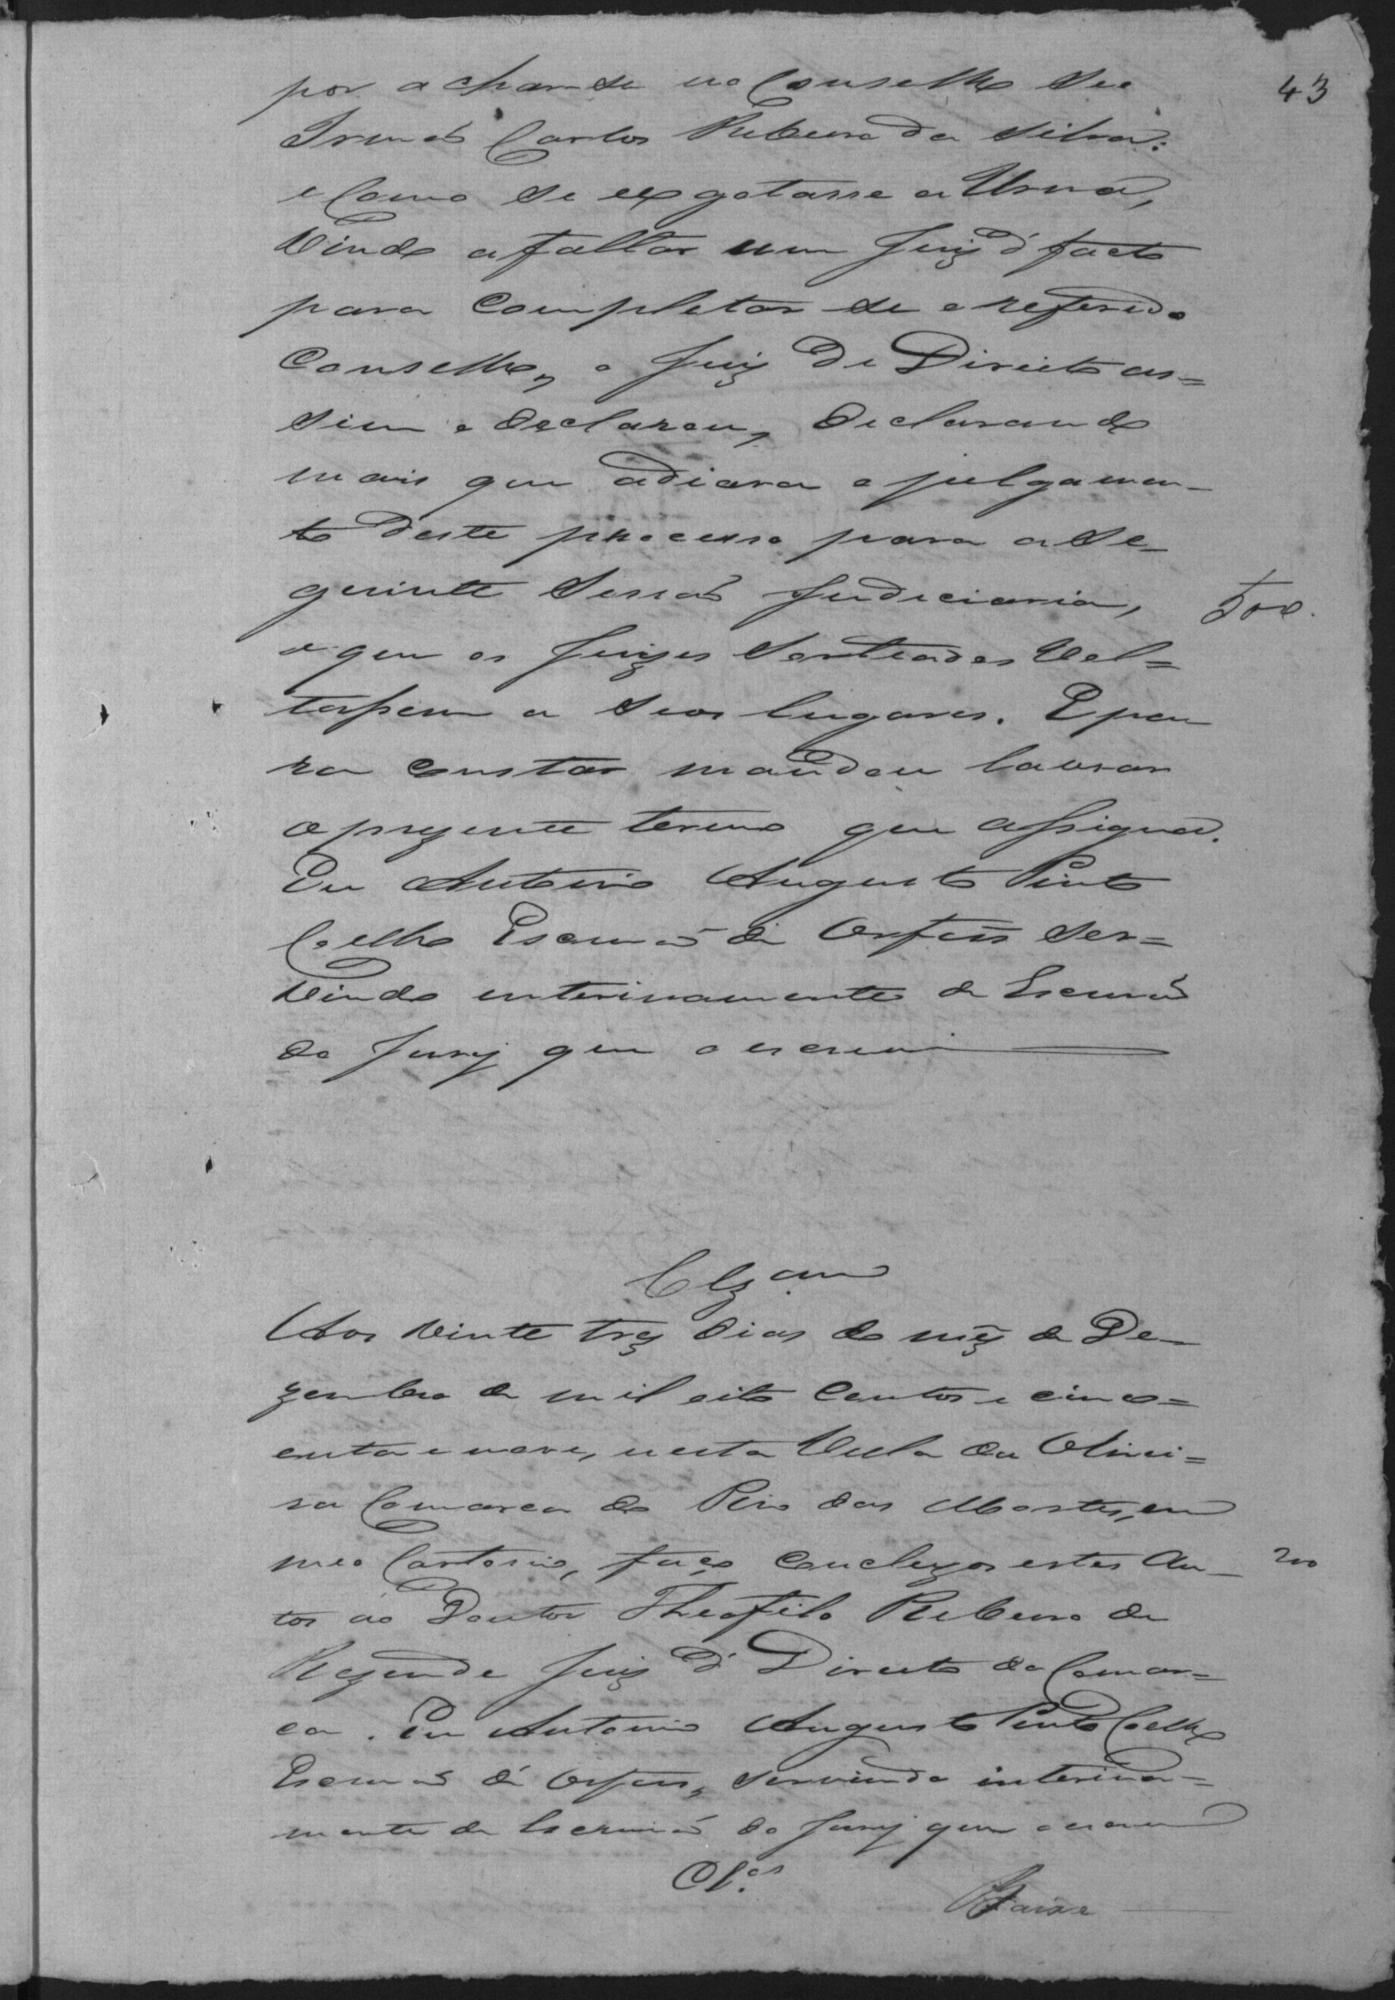 43
por achar-se no Conselho seu
Irmaõ Carlos Ribeiro da Silva:
e Como se exgotasse a Urna,
vindo a faltar um Juiz d' facto
para Completar-se o referido
Conselho, o Juiz de Direito as=
sim o declarou, declarando
mais que adiava o julgamen-
to deste processo para a Se-
guinte Sessaõ Judiciaria,
500
e que os Juizes Sorteados Vol=
tassem a seos lugares. E pa
ra constar mandou lavrar
o prezente termo que assigna.
Eu Antonio Augusto Pinto
Coelho Escrivaõ de Orfaõs Ser=
vindo interinamente de Escrivaõ
do Jury que o escrevi
Clzam
Aos vinte trez dias do mêz de De-
zembro de mil oito Centos e cinco=
enta e nove, nesta Villa da Olivei=
ra Comarca do Rio das Mortes, em
meo Cartorio, faço Concluzos estes Au-
200
tos ao Doutor Theofilo Ribeiro de
Rezende Juiz d' Direito da Comar=
ca. Eu Antonio Augusto Pinto Coelho
Escrivaõ de Orfaõs, servindo interina=
mente de Escrivaõ do Jury que o escrevi
Cl.os